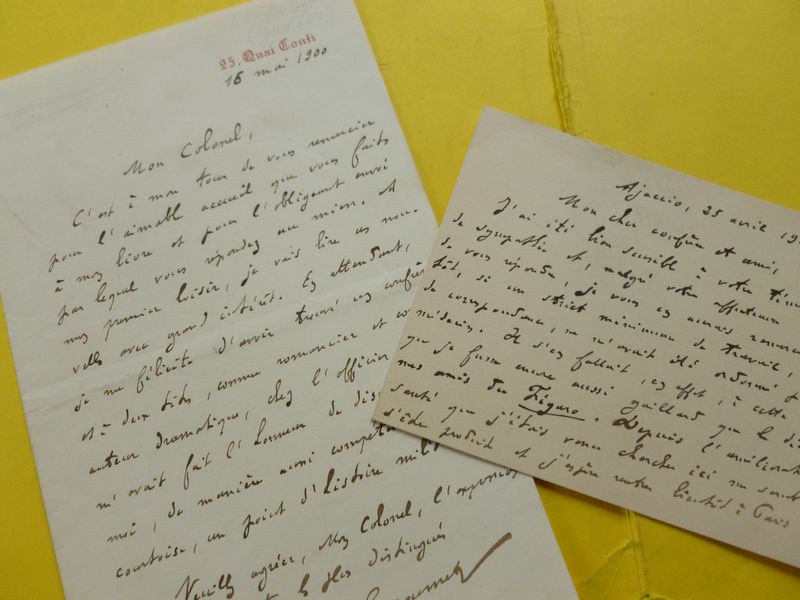 25. Quai Conti
16 mai 1900
Mon Colonel,
C'est à mon tour de vous remercier
pour l'aimable accueil que vous faits
à mon livre et pour l'obligeant envoi
par lequel vous répondez au mien. A
mon premier loisir, je vais lire ces nou-
velles avec grand intérêt. En attendant,
je me félicite d'avoir trouvé un confrè
et à deux fids, comme romancier et co
auteur dramatique, chez l'officier
m'avait fait l'honneur de dis
moi, de manière aussi compéte
courtoise, un point d'histoire mili
Veuillez agréer, Mon Colonel, l'expression
les plus distingués
Ajaccio, 25 avril 19
Mon cher confrère et ami,
J'ai été bien sensible à votre tém
de sympathie et, malgré votre
de vous répondre, je vous en aurais remerci
tôt, si un strict minimum de travail,
de correspondance, ne m'avait été ordonné p
médecin. Il s'en fallait, en effet, à cette
que je fusse encore aussi gaillard que le di
nos amis du Figaro. Depuis l'améliorat
santé que j'étais venu chercher ici
s'est produite et j'espère rentrer bientôt à Paris